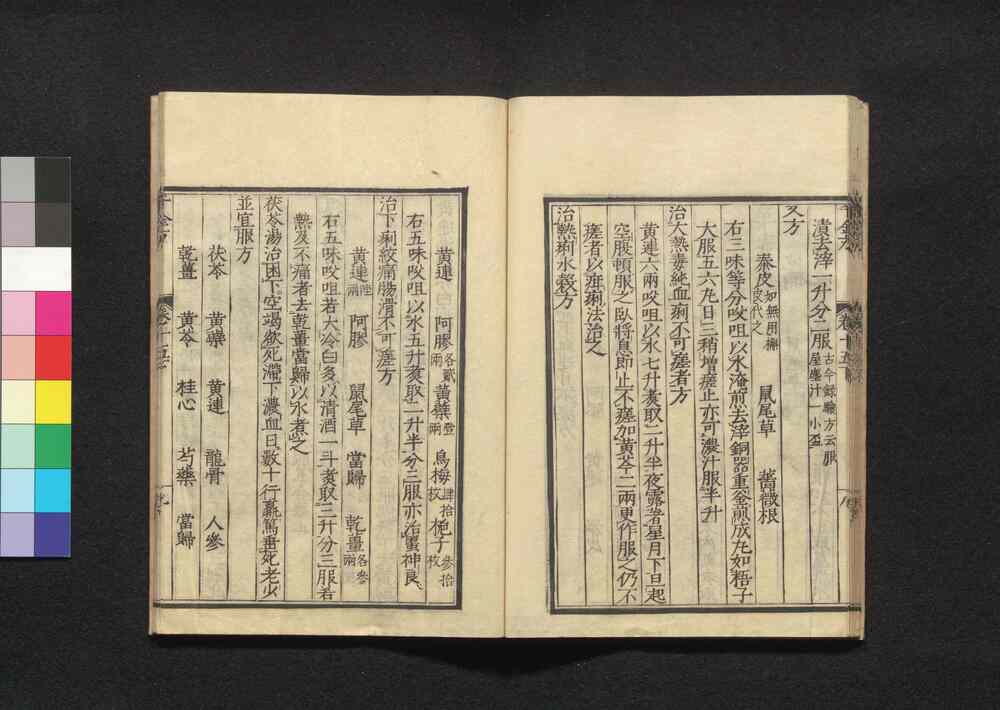 漬去滓一升分二服古今録驗方云服屋塵汁一小盃
又方
秦皮如無用槲皮代之 鼠尾草 薔薇根
右三味等分㕮咀以水淹煎去滓銅器重釜煎成丸如梧子
大服五六丸日三稍增瘥止亦可濃汁服半升
治大熱毒純血痢不可瘥者方
黃連六兩㕮咀以水七升煑取二升半夜露著星月下旦起
空腹頓服之臥將息即止不瘥加黃芩二兩更作服之仍不
瘥者以疳痢法治之
治熱痢水穀方
黃連 阿膠各貳兩 黃蘗壹兩 烏梅肆拾枚 梔子參拾枚
右五味㕮咀以水五升煑取二升半分三服亦治䘌神良
治下痢絞痛腸滑不可瘥方
黃連陸兩 阿膠 鼠尾草 當歸 乾薑各參兩
右五味㕮咀若大冷白多以清酒一斗煑取三升分三服若
熱及不痛者去乾薑當歸以水煮之
茯苓湯治困下空竭欲死滯下濃血日數十行羸篤垂死老少
並宜服方
茯苓 黃蘗 黃連 龍骨 人參
乾薑 黃芩 桂心 芍藥 當歸